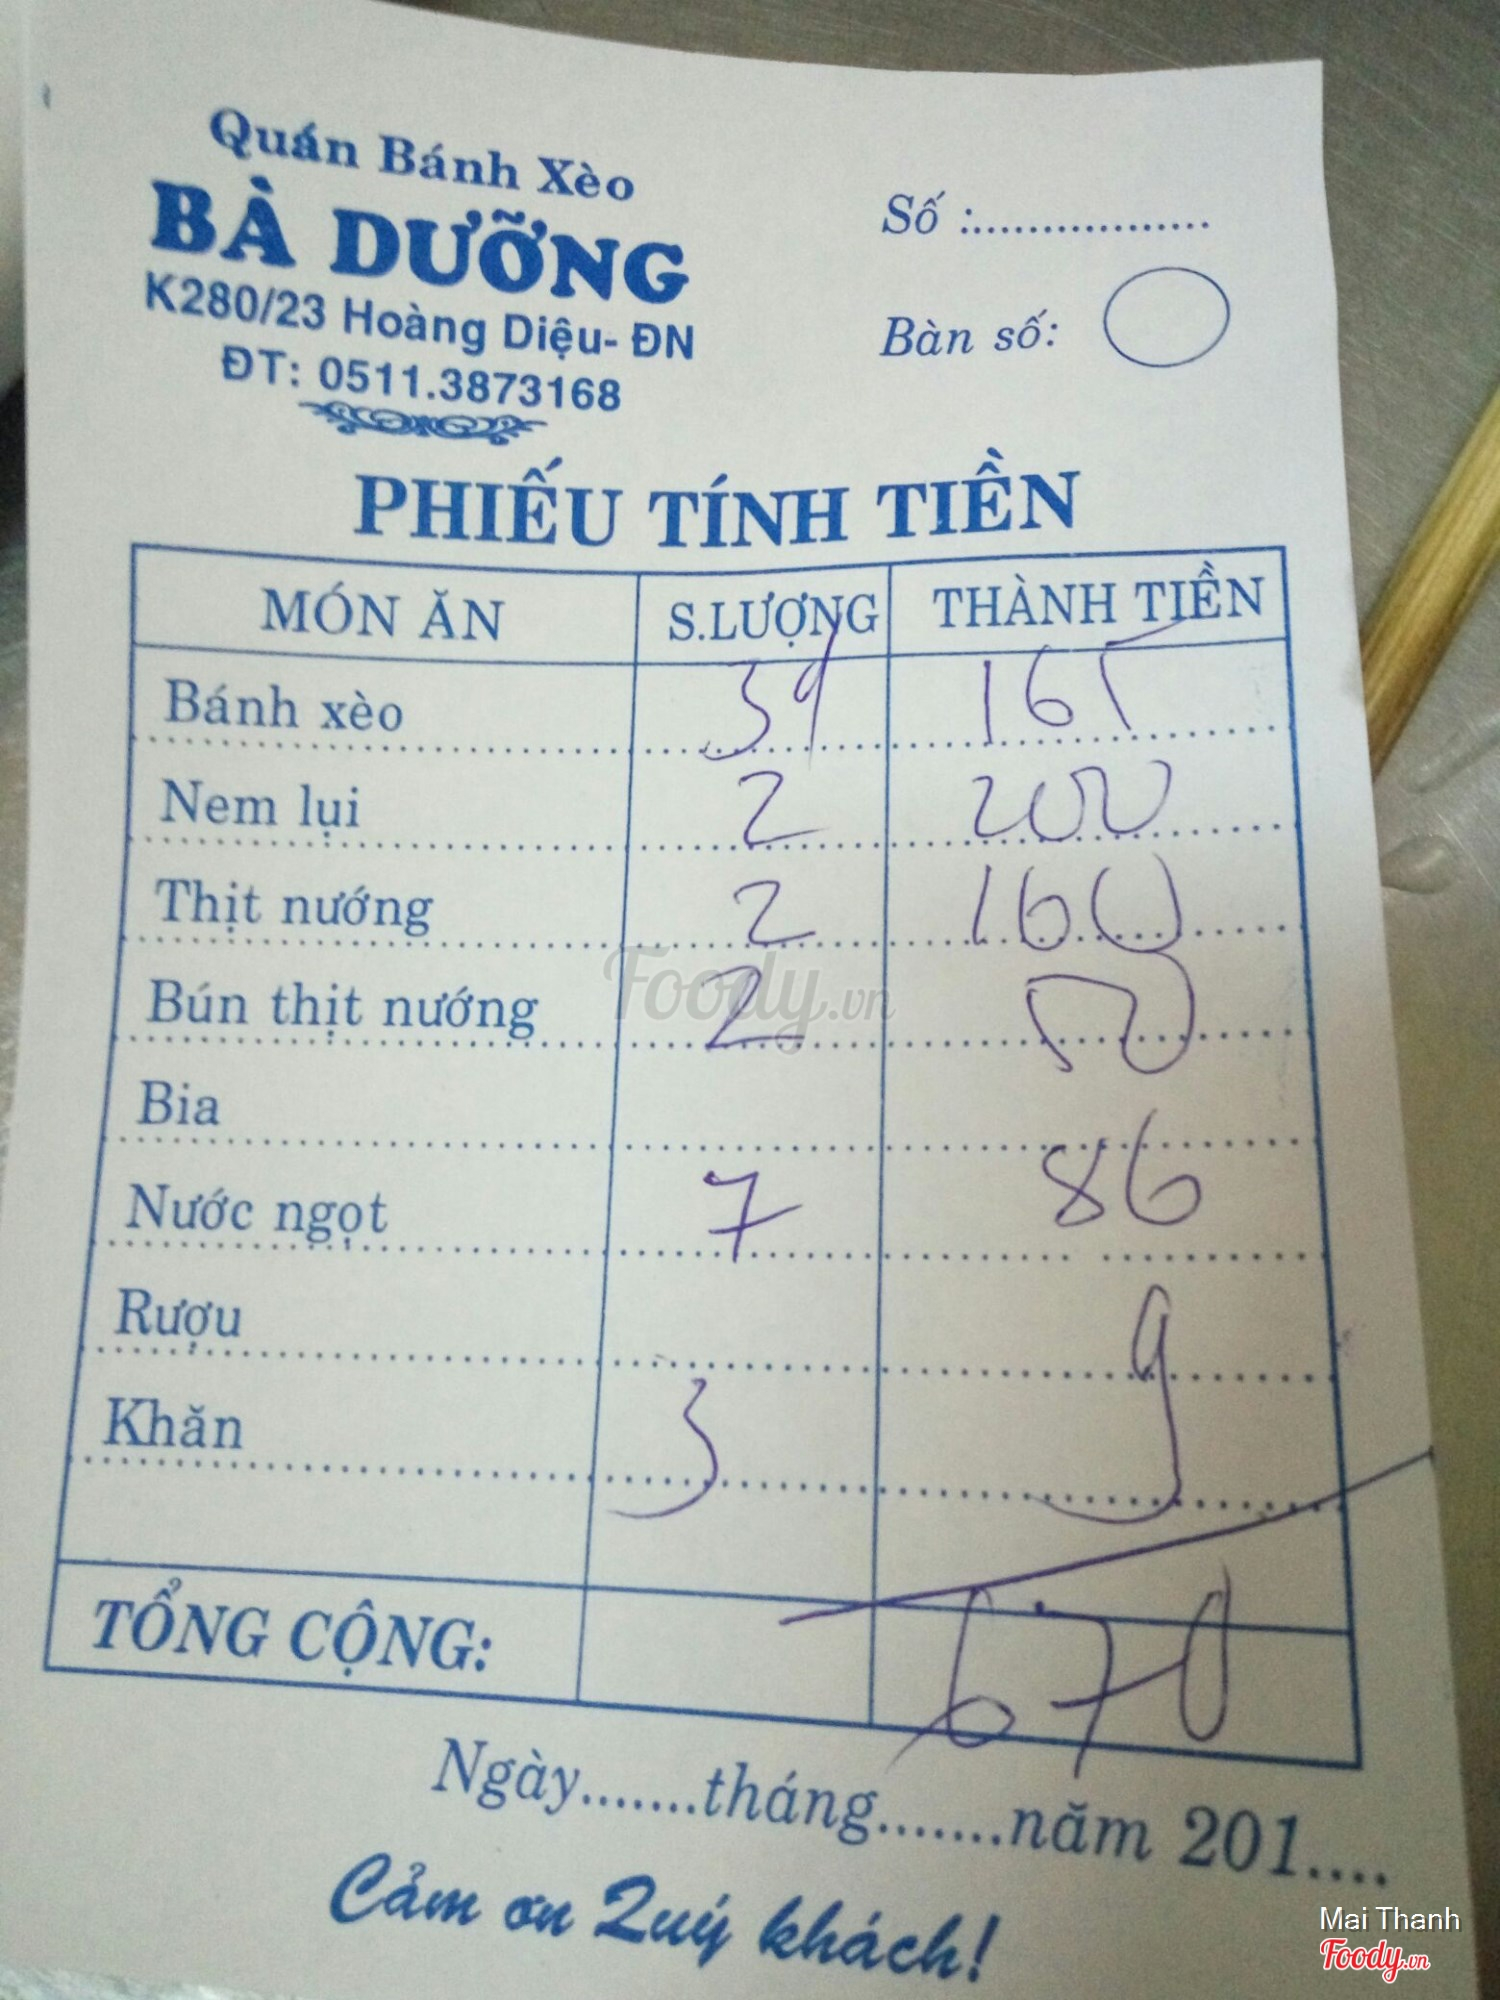 Quán Bánh Xèo
BÀ DƯỠNG
K280/23 Hoàng Diệu- ĐN
ĐT: 0511.3873168
Số :..................
Bàn số:
PHIẾU TÍNH TIỀN
MÓN ĂN S.LƯỢNG THÀNH TIỀN
Bánh xèo 165
Nem lụi 2 200
Thịt nướng 2 160
Bún thịt nướng 2
Bia
Nước ngọt 7 86
Rượu
Khăn 3 9
TỔNG CỘNG: 670
Ngày.......tháng.......năm 201....
Cảm ơn Quý khách!
Foody.vn
Mai Thanh
Foody.vn